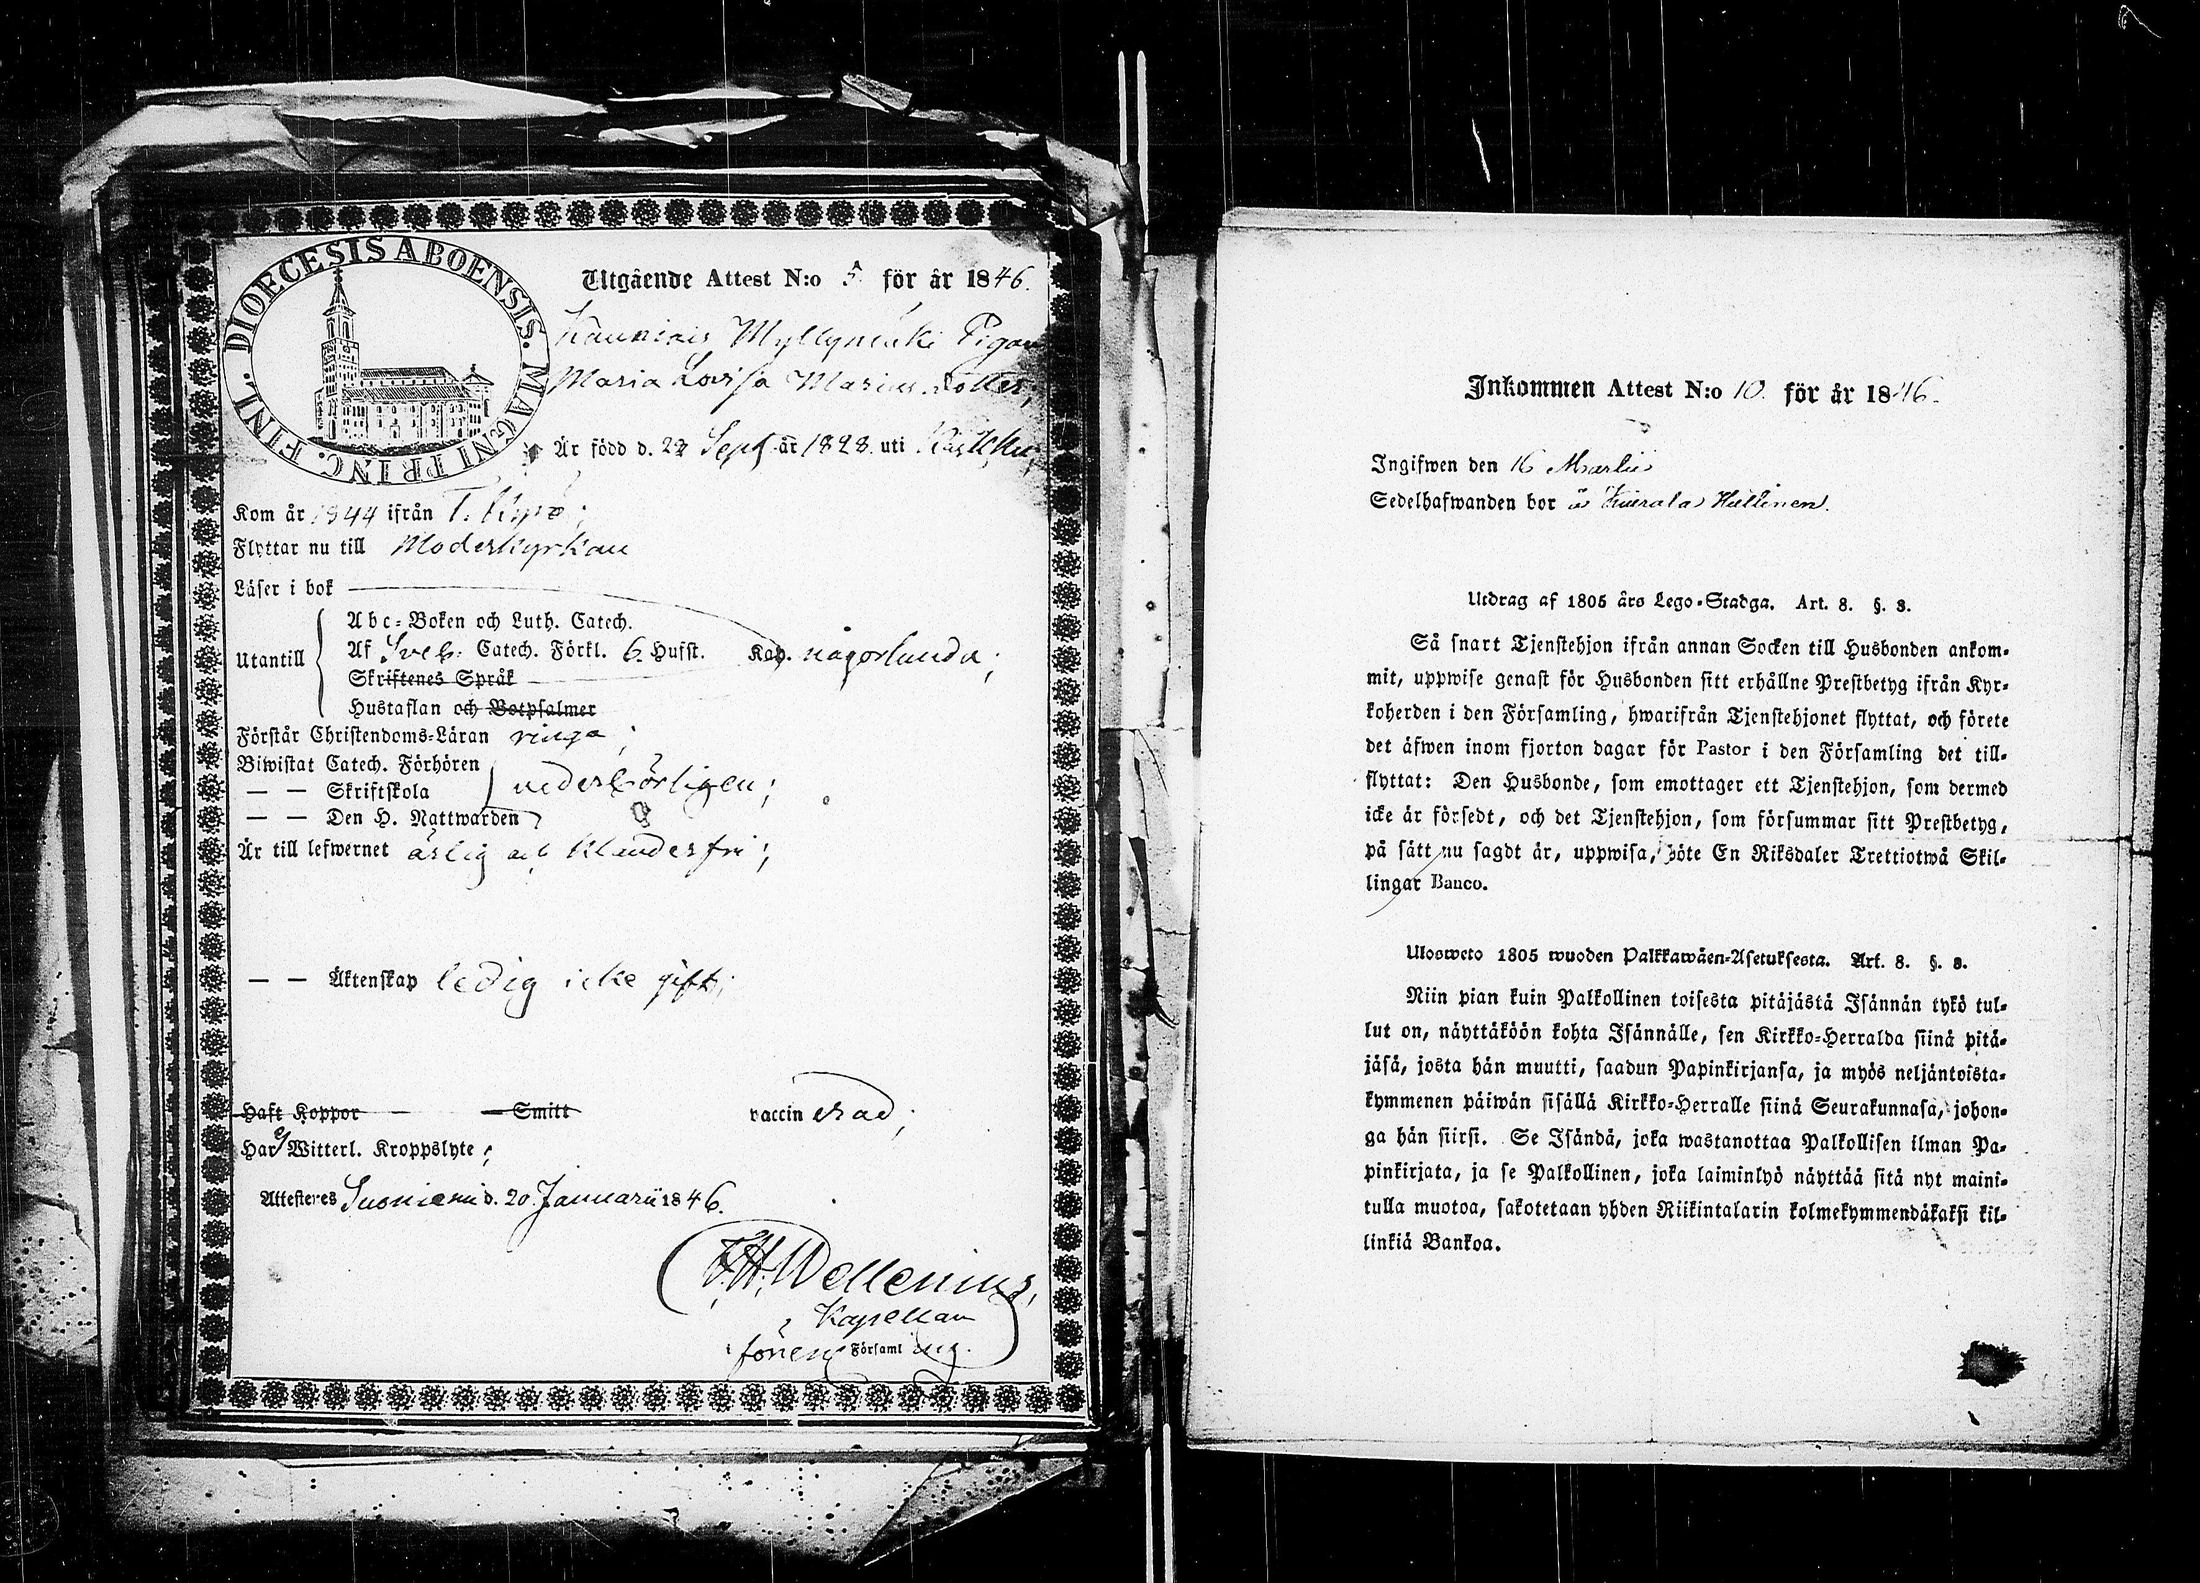 DIOECESIS ABOENSIS. MAGNI PRINC. FINL.
Utgående Attest N:o 5 för år 1846.
Myllymäki Pigan
Maria Lovisa dotter,
Är född d. Sept år 1828. uti
Kom år 1844 ifrån T. Kyrö;
Flyttar nu till Moderkyrkan
Läser i bok
Utantill
Abc-Boken och Luth. Catech.
Af Sveb. Catech. Förkl. 6. Hufst. Kap. någorlunda;
Skriftenes Språk
Hustaflan och Botpsalmer
Förstår Christendoms-Läran ringa;
Biwistat Catech. Förhören
— — Skriftskola vederbörligen;
— — Den H. Nattwarden
Är till lefwernet ärlig och klanderfri;
— — Äktenskap ledig icke gift;
Haft Koppor — Smitt vaccin erad;
Har ej Witterl. Kroppslyte;
Attesteres Suoniemi d. 20 Januarii 1846.
F. H. Wellenius,
Kapellan
i fören Församl ing.
Inkommen Attest N:o 10. för år 1846.
Ingifwen den 16 Martii
Sedelhafwanden bor
Utdrag af 1805 års Lego-Stadga. Art. 8. §. 3.
Så snart Tjenstehjon ifrån annan Socken till Husbonden ankom-
mit, uppwise genast för Husbonden sitt erhållne Prestbetyg ifrån Kyr-
koherden i den Församling, hwarifrån Tjenstehjonet flyttat, och förete
det äfwen inom fjorton dagar för Pastor i den Församling det till-
flyttat: Den Husbonde, som emottager ett Tjenstehjon, som dermed
icke är försedt, och det Tjenstehjon, som försummar sitt Prestbetyg,
på sätt nu sagdt är, uppwisa, böte En Riksdaler Trettiotwå Skil-
lingar Banco.
Ulosweto 1805 wuoden Palkkawäen-Asetuksesta. Art. 8. §. 3.
Niin pian kuin Palkollinen toisesta pitäjästä Isännän tykö tul-
lut on, näyttäköön kohta Isännälle, sen Kirkko-Herralda siinä pitä-
jäsä, josta hän muutti, saadun Papinkirjansa, ja myös neljäntoista-
kymmenen päiwän sisällä Kirkko-Herralle siinä Seurakunnasa, johon-
ga hän siirsi. Se Isändä, joka wastanottaa Palkollisen ilman Pa-
pinkirjata, ja se Palkollinen, joka laiminlyö näyttää sitä nyt maini-
tulla muotoa, sakotetaan yhden Riikintalarin kolmekymmendäkaksi kil-
linkiä Bankoa.